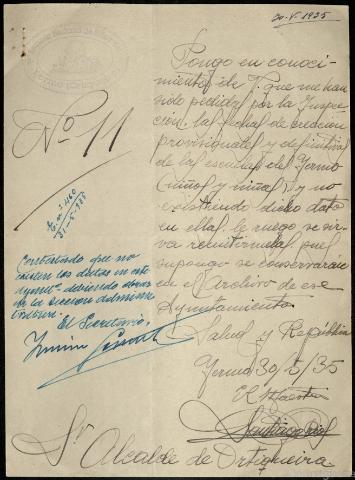 20-V-1935
Nº 11
Pongo en conoci-
miento de V. que me han
sido pedidas por la Inspec-
ción, las fechas de creación
provisionales y definitivas
de las escuelas del Yermo
(niños y niñas) y no
existiendo dicho dato
en ellas le ruego se sir-
va remitírmelas pues
supongo se conservarán
en el Archivo de ese
Ayuntamiento
Salud y República
Yermo 30/5/35
El Maestro
Sr Alcalde de Ortigueira
31-5-935
Contestado que no
existen los datos en este
Aymtº debiendo obrar
en la sección adminis-
trativa.
El Secretario,